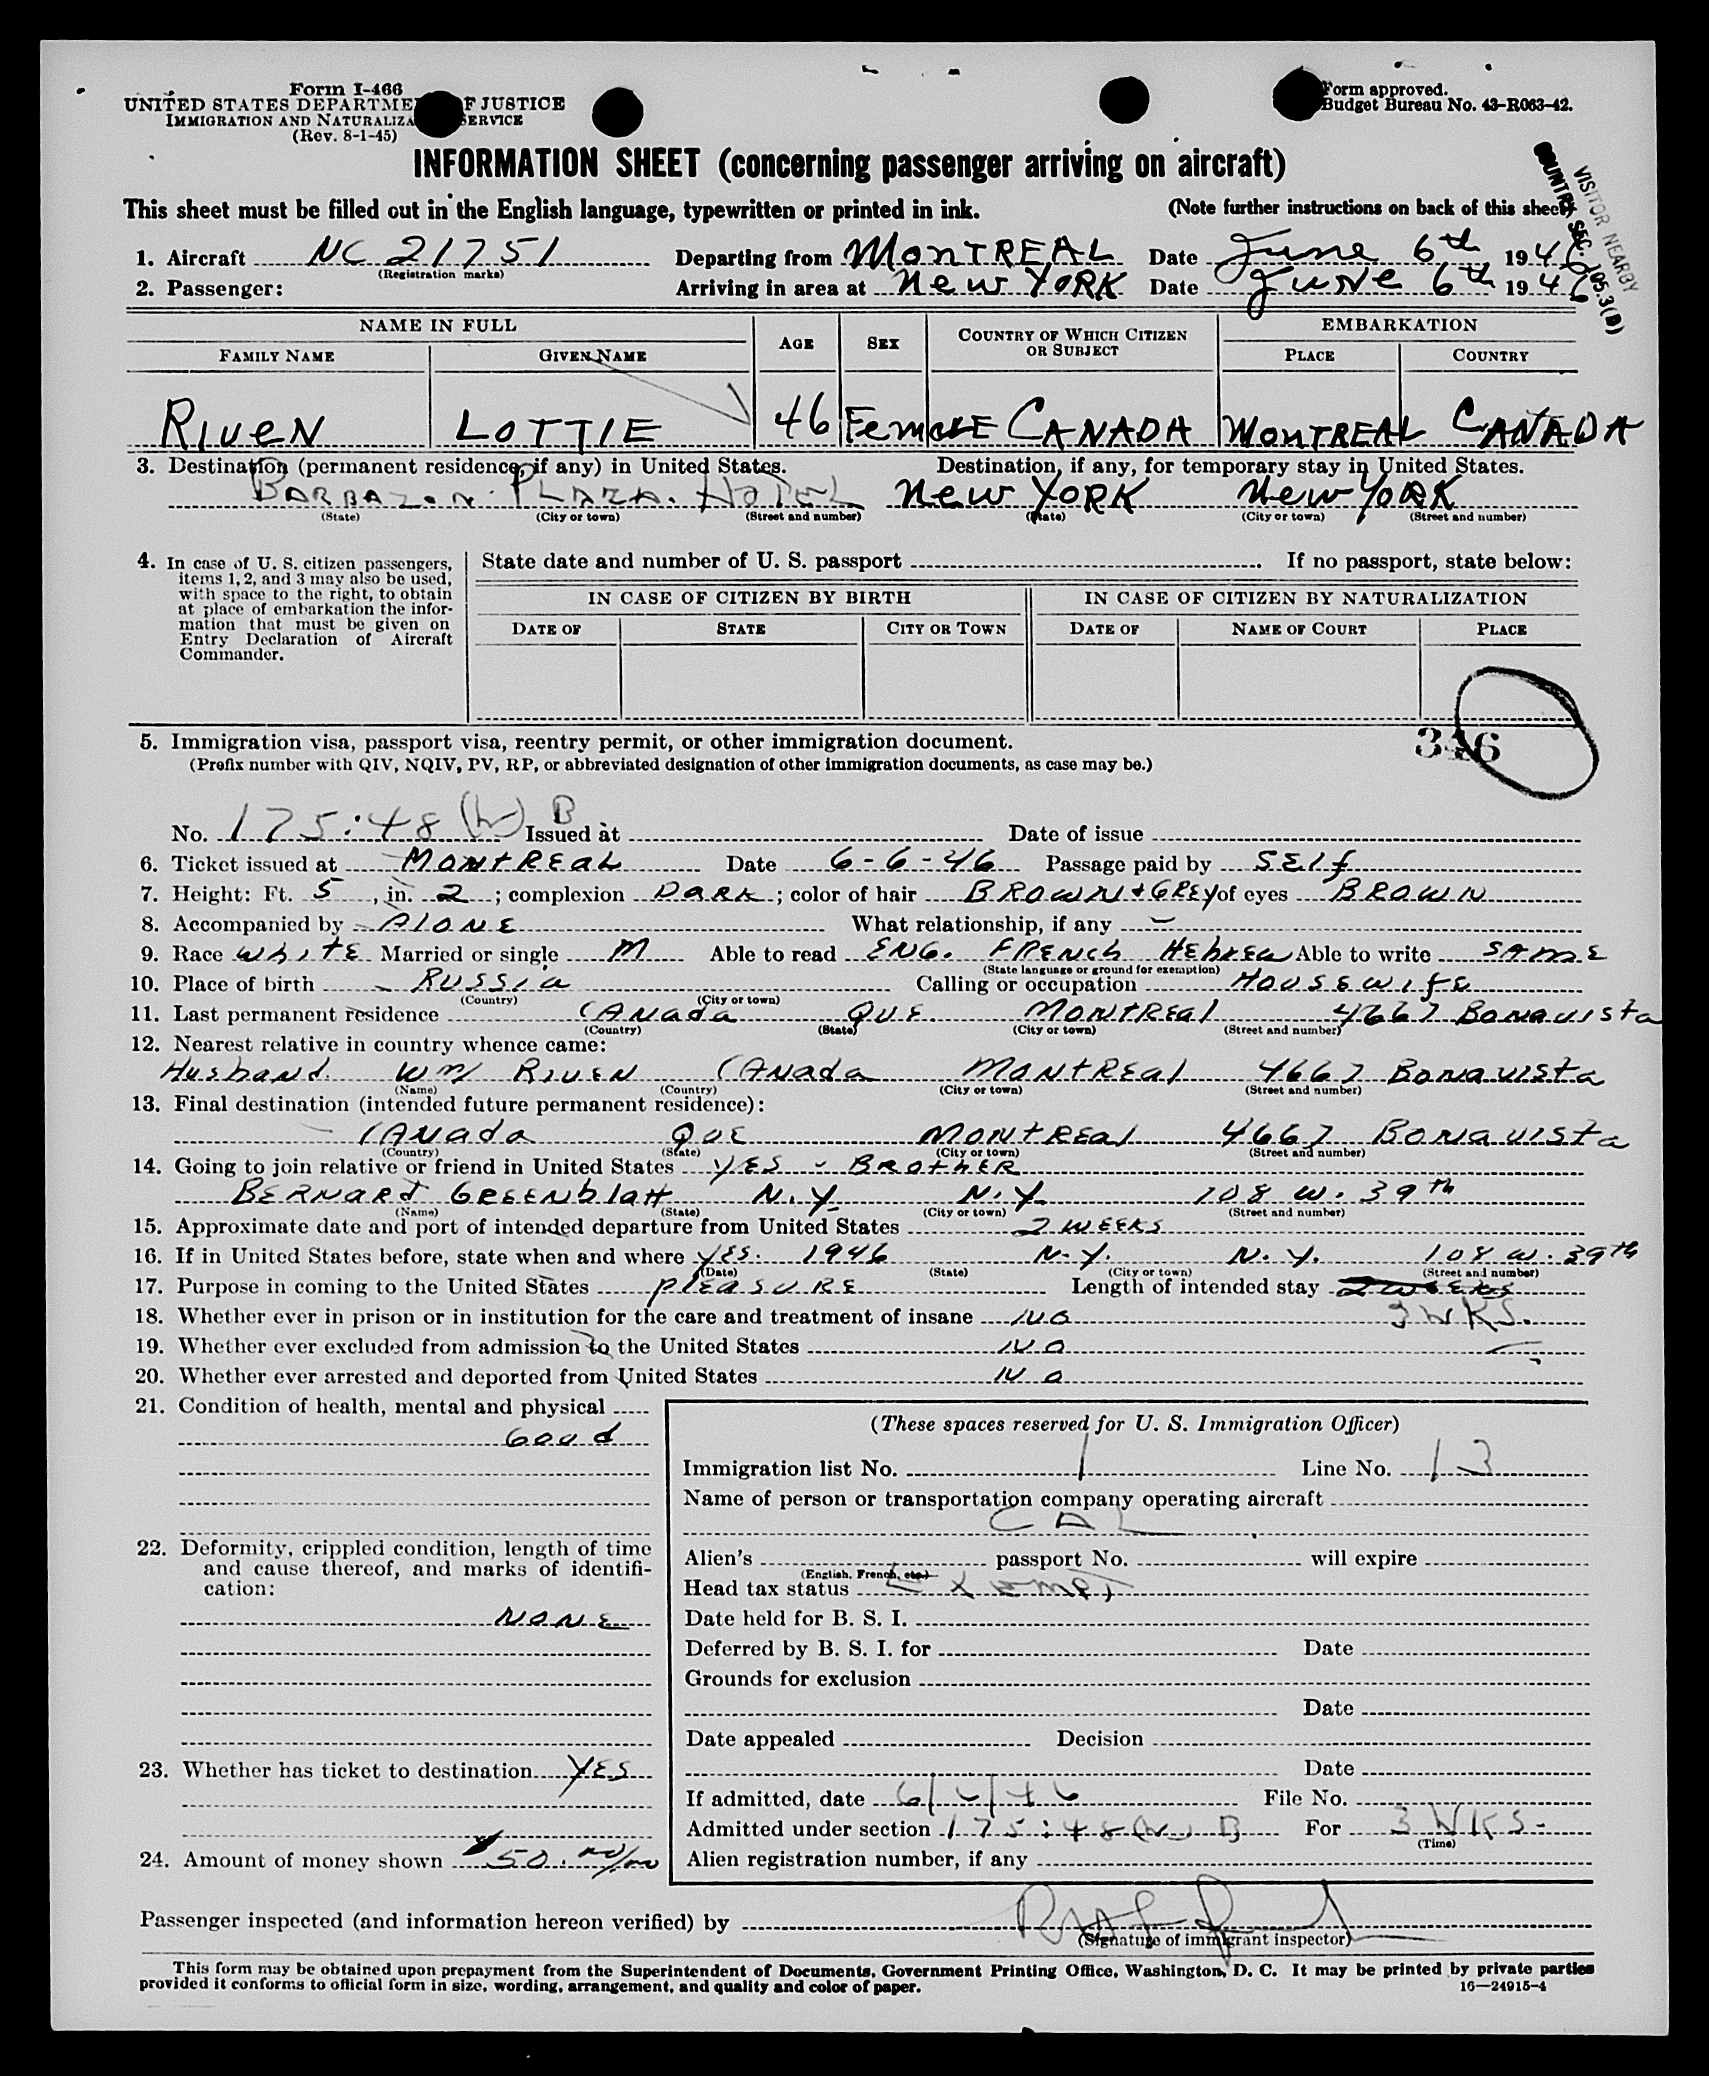 Form I-466
UNITED STATES DEPARTME F JUSTICE
IMMIGRATION AND NATURALIZA SERVICE
(Rev. 8-1-45)
Form approved.
Budget Bureau No. 43-R063-42.
INFORMATION SHEET (concerning passenger arriving on aircraft)
COUNTRY SEC. 195.3(B)
VISITOR NEARBY
This sheet must be filled out in the English language, typewritten or printed in ink. (Note further instructions on back of this sheet)
1. Aircraft NC 21751 Departing from MONTREAL Date June 6th 1946
(Registration marks)
2. Passenger: Arriving in area at New YORK Date JUNe 6th 1946
NAME IN FULL AGE SEX COUNTRY OF WHICH CITIZEN OR SUBJECT EMBARKATION
FAMILY NAME GIVEN NAME PLACE COUNTRY
RIVEN LOTTIE 46 FemaLE CANADA MONTREAL CANADA
3. Destination (permanent residence, if any) in United States. Destination, if any, for temporary stay in United States.
BARBAZON PLAZA HOTEL New YORK New YORK
(State) (City or town) (Street and number) (State) (City or town) (Street and number)
4. In case of U. S. citizen passengers, items 1, 2, and 3 may also be used, with space to the right, to obtain at place of embarkation the information that must be given on Entry Declaration of Aircraft Commander.
State date and number of U. S. passport If no passport, state below:
IN CASE OF CITIZEN BY BIRTH IN CASE OF CITIZEN BY NATURALIZATION
DATE OF STATE CITY OR TOWN DATE OF NAME OF COURT PLACE
346
5. Immigration visa, passport visa, reentry permit, or other immigration document.
(Prefix number with QIV, NQIV, PV, RP, or abbreviated designation of other immigration documents, as case may be.)
No. 175:48 (W) B Issued at Date of issue
6. Ticket issued at MONTREAL Date 6-6-46 Passage paid by SElf
7. Height: Ft. 5, in. 2; complexion DARK; color of hair BROWN + GREY of eyes BROWN
8. Accompanied by AlONE What relationship, if any -
9. Race WhitE Married or single M Able to read ENG. FRENch HEbREW Able to write SAmE
(State language or ground for exemption)
10. Place of birth RUSSia Calling or occupation HOUSEWifE
(Country) (City or town)
11. Last permanent residence CANada QUE MONtREal 4667 BONAVISta
(Country) (State) (City or town) (Street and number)
12. Nearest relative in country whence came:
Husband Wm RIVEN CANada MONtREal 4667 BONAVISta
(Name) (Country) (City or town) (Street and number)
13. Final destination (intended future permanent residence):
CANada QUE MONtREal 4667 BONAVISta
(Country) (State) (City or town) (Street and number)
14. Going to join relative or friend in United States YES - BROthER
BERNARd GREENblatt N.Y. N.Y. 108 W. 39th
(Name) (State) (City or town) (Street and number)
15. Approximate date and port of intended departure from United States 2 WEEKS
16. If in United States before, state when and where YES. 1946 N.Y. N.Y. 108 W. 39th
(Date) (State) (City or town) (Street and number)
17. Purpose in coming to the United States PlEASURE Length of intended stay 2 WEEKS
3 WKS.
18. Whether ever in prison or in institution for the care and treatment of insane NO
19. Whether ever excluded from admission to the United States NO
20. Whether ever arrested and deported from United States NO
21. Condition of health, mental and physical
Good
22. Deformity, crippled condition, length of time and cause thereof, and marks of identification:
NONE
23. Whether has ticket to destination YES
24. Amount of money shown $50.00/00
(These spaces reserved for U. S. Immigration Officer)
Immigration list No. 1 Line No. 13
Name of person or transportation company operating aircraft
CAL
Alien's passport No. will expire
(English, French, etc.)
Head tax status Exempt
Date held for B. S. I.
Deferred by B. S. I. for Date
Grounds for exclusion
Date
Date appealed Decision
Date
If admitted, date 6/6/46 File No.
Admitted under section 175:48(W) B For 3 WKS.
(Time)
Alien registration number, if any
Passenger inspected (and information hereon verified) by
(Signature of immigrant inspector)
This form may be obtained upon prepayment from the Superintendent of Documents, Government Printing Office, Washington, D. C. It may be printed by private parties
provided it conforms to official form in size, wording, arrangement, and quality and color of paper. 16—24915-4